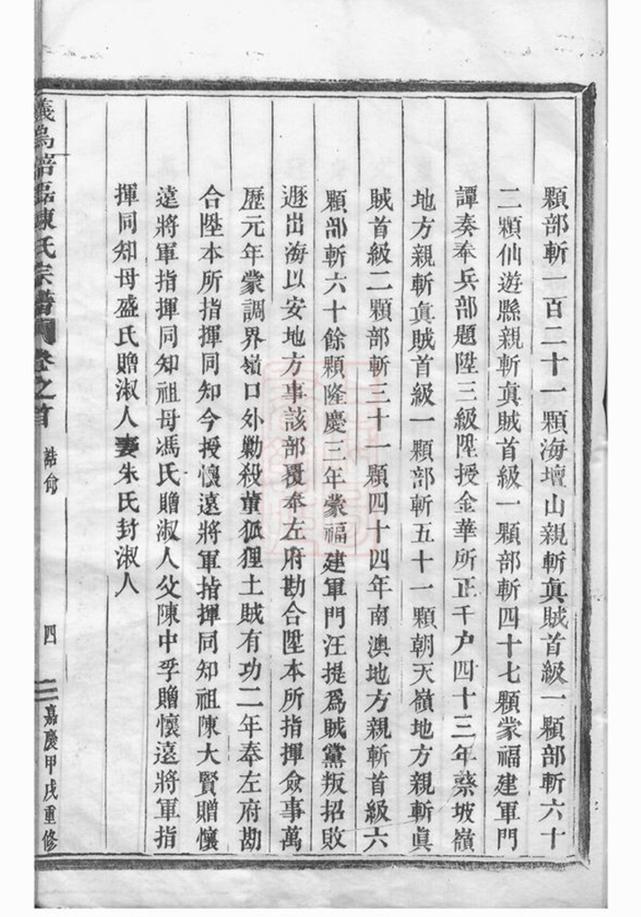 顆部斬一百二十一顆海壇山親斬眞賊首級一顆部斬六十
二顆仙遊縣親斬眞賊首級一顆部斬四十七顆蒙福建軍門
譚奏奉兵部題陞三級陞授金華所正千户四十三年蔡坡嶺
地方親斬眞賊首級一顆部斬五十一顆朝天嶺地方親斬眞
賊首級二顆部斬三十一顆四十四年南澳地方親斬首級六
顆部斬六十餘顆隆慶三年蒙福建軍門汪提爲賊黨叛招敗
遯出海以安地方事該部覆奉左府勘合陞本所指揮僉事萬
歷元年蒙調界嶺口外勦殺董狐狸土賊有功二年奉左府勘
合陞本所指揮同知今授懷遠將軍指揮同知祖陳大賢贈懷
遠將軍指揮同知祖母馮氏贈淑人父陳中孚贈懷遠將軍指
揮同知母盛氏贈淑人妻朱氏封淑人
義烏倍磊陳氏宗譜 卷之首 誥命 四 嘉慶甲戌重修